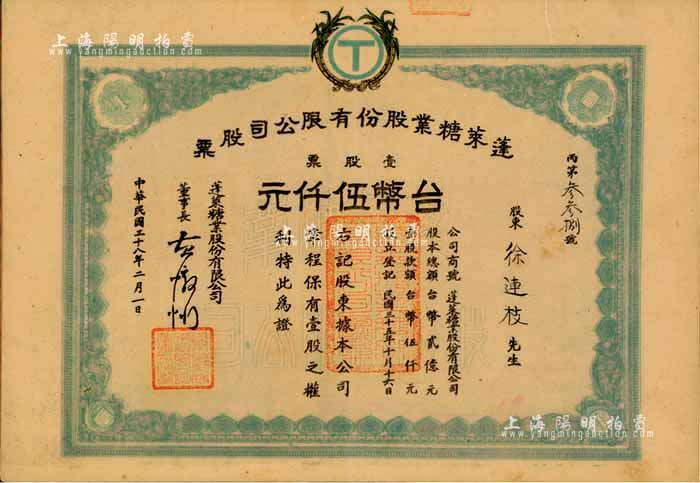 上海陽明拍賣
www.yangmingauction.com
上海陽明拍賣
www.yangmingauction.com
T
蓬萊糖業股份有限公司股票
壹股票
台幣伍仟元
丙第叁叁捌號
股東 徐連枝 先生
公司商號 蓬萊糖業股份有限公司
股本總額 台幣貳億元
壹股款額 台幣伍仟元
設立登記 民國三十五年十月十六日
右記股東據本公司
章程保有壹股之權
利特此為證
蓬萊糖業股份有限公司
董事長
中華民國三十八年二月一日
上海陽明拍賣
www.yangmingauction.com